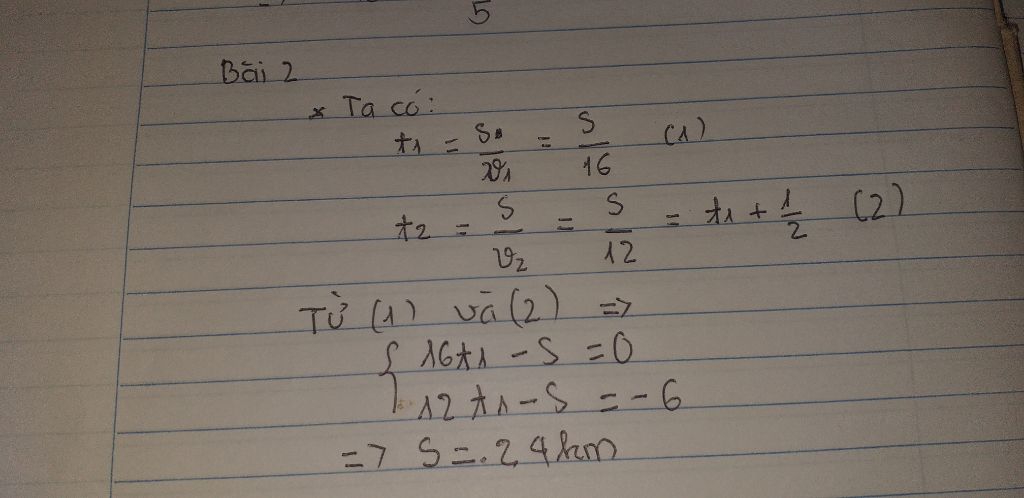 5
Bài 2
* Ta có:
t1 = S/v1 = S/16 (1)
t2 = S/v2 = S/12 = t1 + 1/2 (2)
Từ (1) và (2) =>
{ 16t1 - S = 0
12t1 - S = -6
=> S = 24km